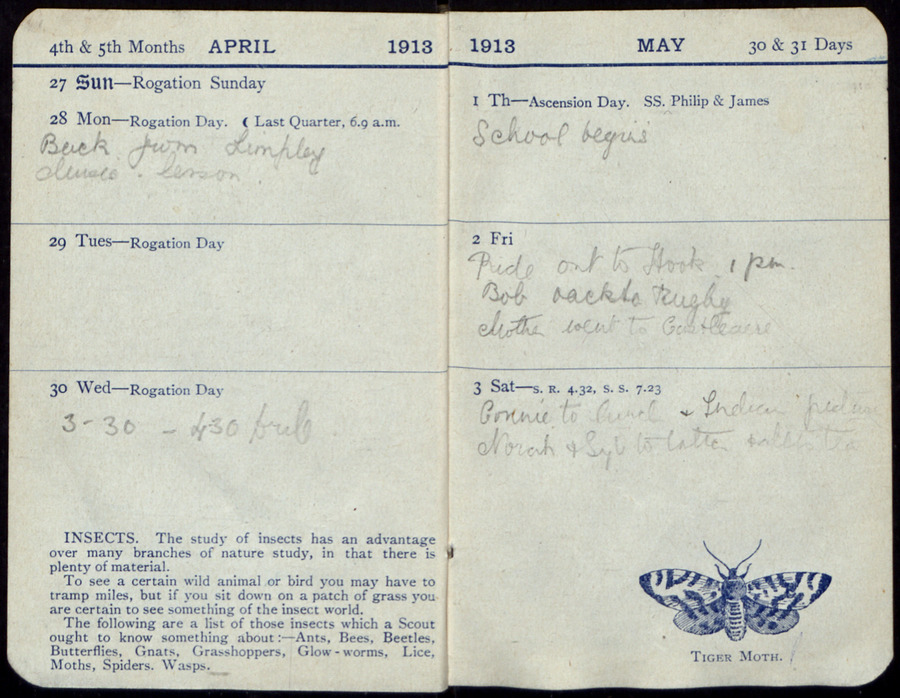 4th & 5th Months APRIL 1913
27 Sun—Rogation Sunday
28 Mon—Rogation Day. ☾ Last Quarter, 6.9 a.m.
Back from Limpley
Music. Lesson
29 Tues—Rogation Day
30 Wed—Rogation Day
3-30 - 430
INSECTS. The study of insects has an advantage
over many branches of nature study, in that there is
plenty of material.
To see a certain wild animal or bird you may have to
tramp miles, but if you sit down on a patch of grass you
are certain to see something of the insect world.
The following are a list of those insects which a Scout
ought to know something about:—Ants, Bees, Beetles,
Butterflies, Gnats, Grasshoppers, Glow-worms, Lice,
Moths, Spiders. Wasps.
1913 MAY 30 & 31 Days
1 Th—Ascension Day. SS. Philip & James
School begins
2 Fri
Ride out to Hook 1 pm.
Bob back to Rugby
Mother went to
3 Sat—S. R. 4.32, S. S. 7.23
Connie to lunch & Indian
Norah & Syb to
TIGER MOTH.